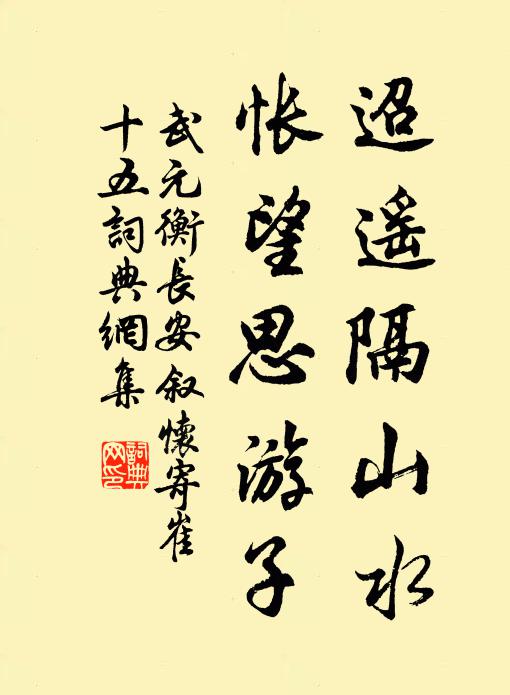 迢遥隔山水
怅望思游子
武元衡长安叙懷寄崔
十五詞典網集
詞典
网印